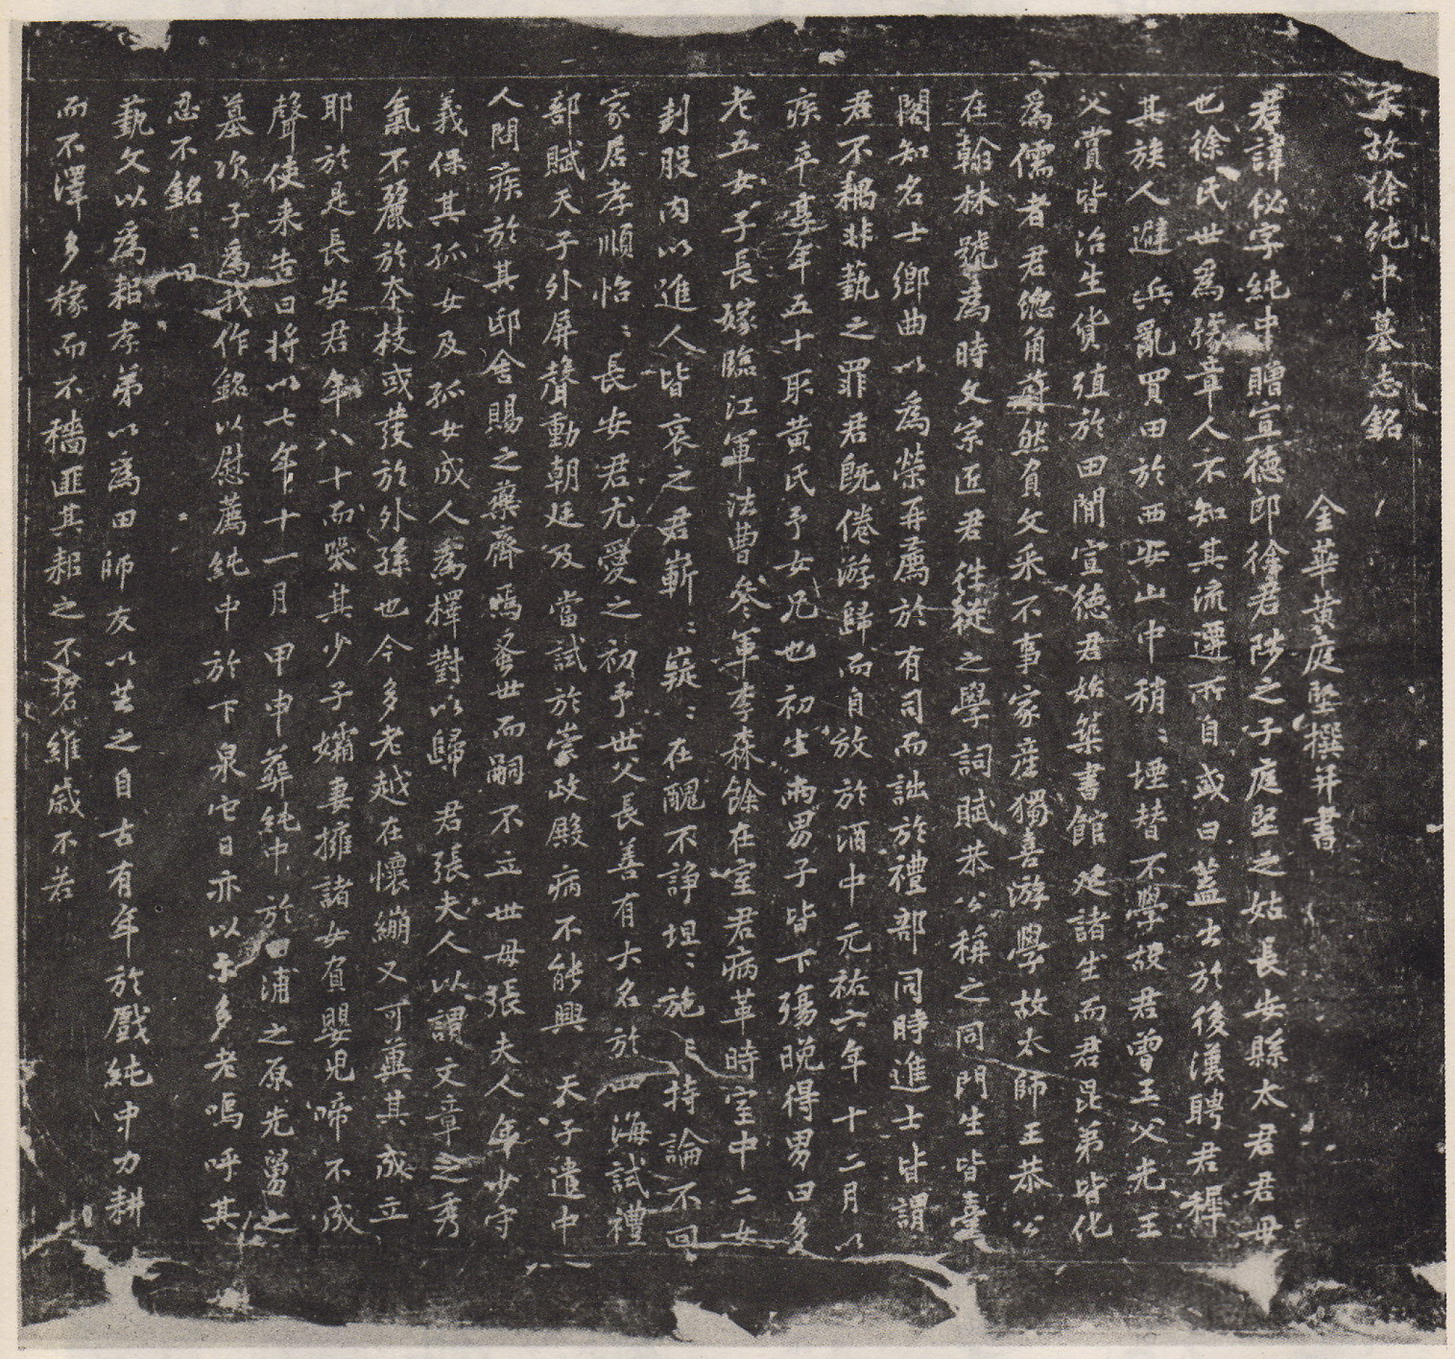 宋故徐純中墓志銘
金華黃庭堅撰并書
君諱佖字純中贈宣德郎徐君陟之子庭堅之姑長安縣太君君母
也徐氏世爲豫章人不知其流遷所自或曰蓋出於後漢聘君穉
其族人避兵亂買田於西安山中稍〻堙替不學故君曾王父先王
父賞皆治生貨殖於田間宣德君始築書館延諸生而君昆弟皆化
爲儒者君緫角藹然負文采不事家産獨喜游學故太師王恭公
在翰林號爲時文宗匠君往從之學詞賦恭公稱之同門生皆臺
閣知名士鄉曲以爲榮再薦於有司而詘於禮部同時進士皆謂
君不耦非藝之罪君旣倦游歸而自放於酒中元祐六年十二月以
疾卒享年五十取黃氏予女兄也初生兩男子皆下殤晚得男曰多
老五女子長嫁臨江軍法曹參軍李森餘在室君病革時室中二女
刲股肉以進人皆哀之君嶄〻巀〻在醜不諍坦〻施〻持論不回
家居孝順怡〻長安君尤愛之初予世父長善有大名於海試禮
部賦天子外屏聲動朝廷及當試於崇政殿病不能興 天子遣中
人問疾於其邸舍賜之藥齊焉蚤世而嗣不立世母張夫人年少守
義保其孤女及孤女成人爲擇對以歸 君張夫人以謂文章之秀
氣不麗於本枝或發於外孫也今多老越在懷繃又可冀其成立
耶於是長安君年八十而哭其少子孀妻擁諸女負嬰兒啼不成
聲使来告曰將以七年十一月 甲申葬純中於 浦之原先舅之
墓次子爲我作銘以慰薦純中於下泉它日亦以示多老嗚呼其
忍不銘〻曰
藝文以爲耜孝弟以爲田師友以芸之自古有年於戲純中力耕
而不澤多稼而不穡匪其耜之不 維歲不若